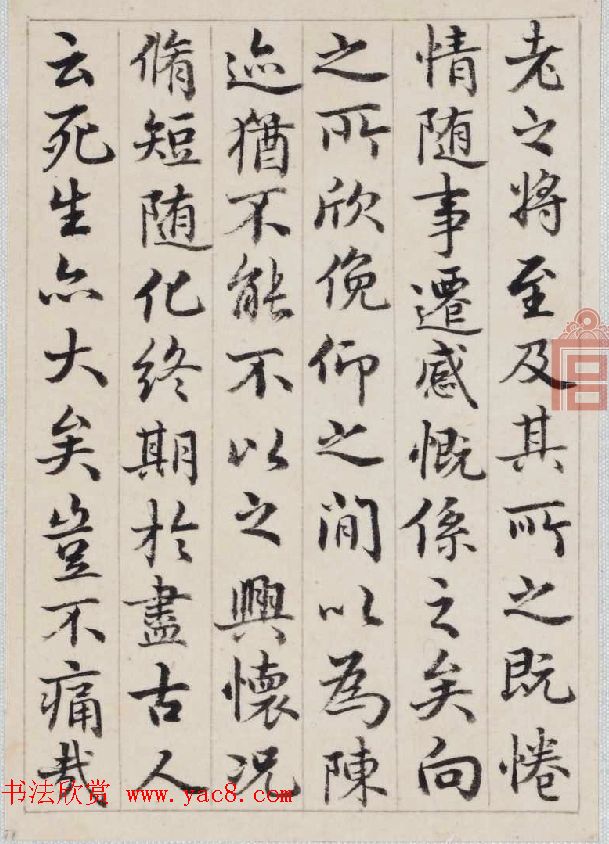 老之將至及其所之既惓
情随事遷感慨係之矣向
之所欣俛仰之間以為陳
迹猶不能不以之興懷況
脩短随化終期於盡古人
云死生亦大矣豈不痛哉
书法欣赏 www.yac8.com